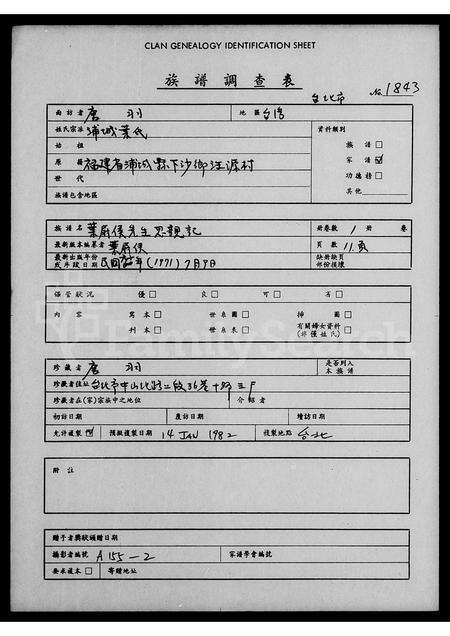 CLAN GENEALOGY IDENTIFICATION SHEET
族譜調查表
台北市
№ 1843
面訪者 唐 羽 地區 台湾
姓氏宗派 浦城葉氏 資料類別
始祖 族譜 □
原籍 福建省浦城縣下沙鄉汪源村 家譜 ☑
世代 功德榜 □
族譜包含地區 其他
族譜名 葉蔚侯先生思親記 冊卷數 1 卷
最新版本編纂者 葉蔚侯 頁數 11頁
最新出版年份 缺冊缺頁
或手跋日期 民國 年 (1971) 7月9日 部份損壞
保管狀況 優 □ 良 □ 可 □ 否 □
內容 寫本 □ 世系圖 □ 排圖 □
刊本 □ 世系表 □ 有關婦女資料 □
(非僅姓氏)
珍藏者 唐 羽 是否列入
本族譜
珍藏者住址 台北市中山北路二段36巷十号三F
珍藏者在(家)宗族中之地位 介紹者
初訪日期 度訪日期 續訪日期
允許複製 ☑ 預擬複製日期 14 JAN 1982 複製地點 台北
附註
贈予者獎狀頒贈日期
攝影者編號 A 155-2 家譜學會編號
要求還本 □ 寄贈地址
FamilySearch